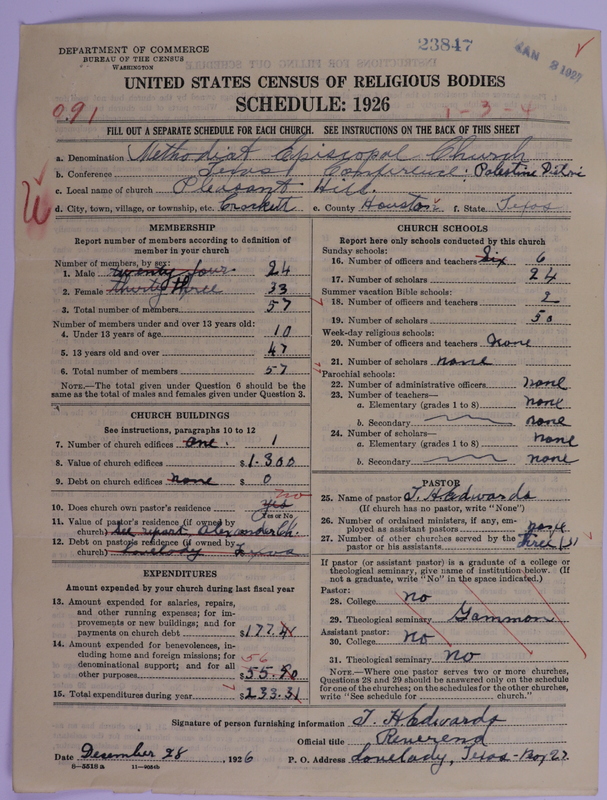 DEPARTMENT OF COMMERCE
BUREAU OF THE CENSUS
WASHINGTON
23847
JAN 3 1927
UNITED STATES CENSUS OF RELIGIOUS BODIES
SCHEDULE: 1926
091
1-3-4
FILL OUT A SEPARATE SCHEDULE FOR EACH CHURCH. SEE INSTRUCTIONS ON THE BACK OF THIS SHEET
a. Denomination Methodist Episcopal Church
b. Conference Texas Conference: Palestine
c. Local name of church Pleasant Hill
d. City, town, village, or township, etc. Crockett e. County Houston f. State Texas
MEMBERSHIP
Report number of members according to definition of member in your church
Number of members, by sex:
1. Male twenty four 24
2. Female thirty three 33
3. Total number of members 57
Number of members under and over 13 years old:
4. Under 13 years of age 10
5. 13 years old and over 47
6. Total number of members 57
NOTE.—The total given under Question 6 should be the same as the total of males and females given under Question 3.
CHURCH BUILDINGS
See instructions, paragraphs 10 to 12
7. Number of church edifices one. 1
8. Value of church edifices $1.300
9. Debt on church edifices none $ 0
10. Does church own pastor's residence yes no
(Yes or No)
11. Value of pastor's residence (if owned by church) See report Alexander Ch.
12. Debt on pastor's residence (if owned by church) Lovelady Texas
EXPENDITURES
Amount expended by your church during last fiscal year
13. Amount expended for salaries, repairs, and other running expenses; for improvements or new buildings; and for payments on church debt $177.
14. Amount expended for benevolences, including home and foreign missions; for denominational support; and for all other purposes 56 $55.
15. Total expenditures during year $233.
CHURCH SCHOOLS
Report here only schools conducted by this church
Sunday schools:
16. Number of officers and teachers Six 6
17. Number of scholars 24
Summer vacation Bible schools:
18. Number of officers and teachers 2
19. Number of scholars 50
Week-day religious schools:
20. Number of officers and teachers none
21. Number of scholars none
Parochial schools:
22. Number of administrative officers none
23. Number of teachers—
a. Elementary (grades 1 to 8) none
b. Secondary none
24. Number of scholars—
a. Elementary (grades 1 to 8) none
b. Secondary none
PASTOR
25. Name of pastor T. H Edwards
(If church has no pastor, write "None")
26. Number of ordained ministers, if any, employed as assistant pastors none
27. Number of other churches served by the pastor or his assistants
If pastor (or assistant pastor) is a graduate of a college or theological seminary, give name of institution below. (If not a graduate, write "No" in the space indicated.)
Pastor:
28. College no
29. Theological seminary Gammon
Assistant pastor:
30. College no
31. Theological seminary no
NOTE.—Where one pastor serves two or more churches, Questions 28 and 29 should be answered only on the schedule for one of the churches; on the schedules for the other churches, write "See schedule for ........ church."
Signature of person furnishing information T. H Edwards
Official title Reverend
Date Desember 28, 1926 P. O. Address Lovelady, Texas - Box 27.
8—5518 a 11—9054b